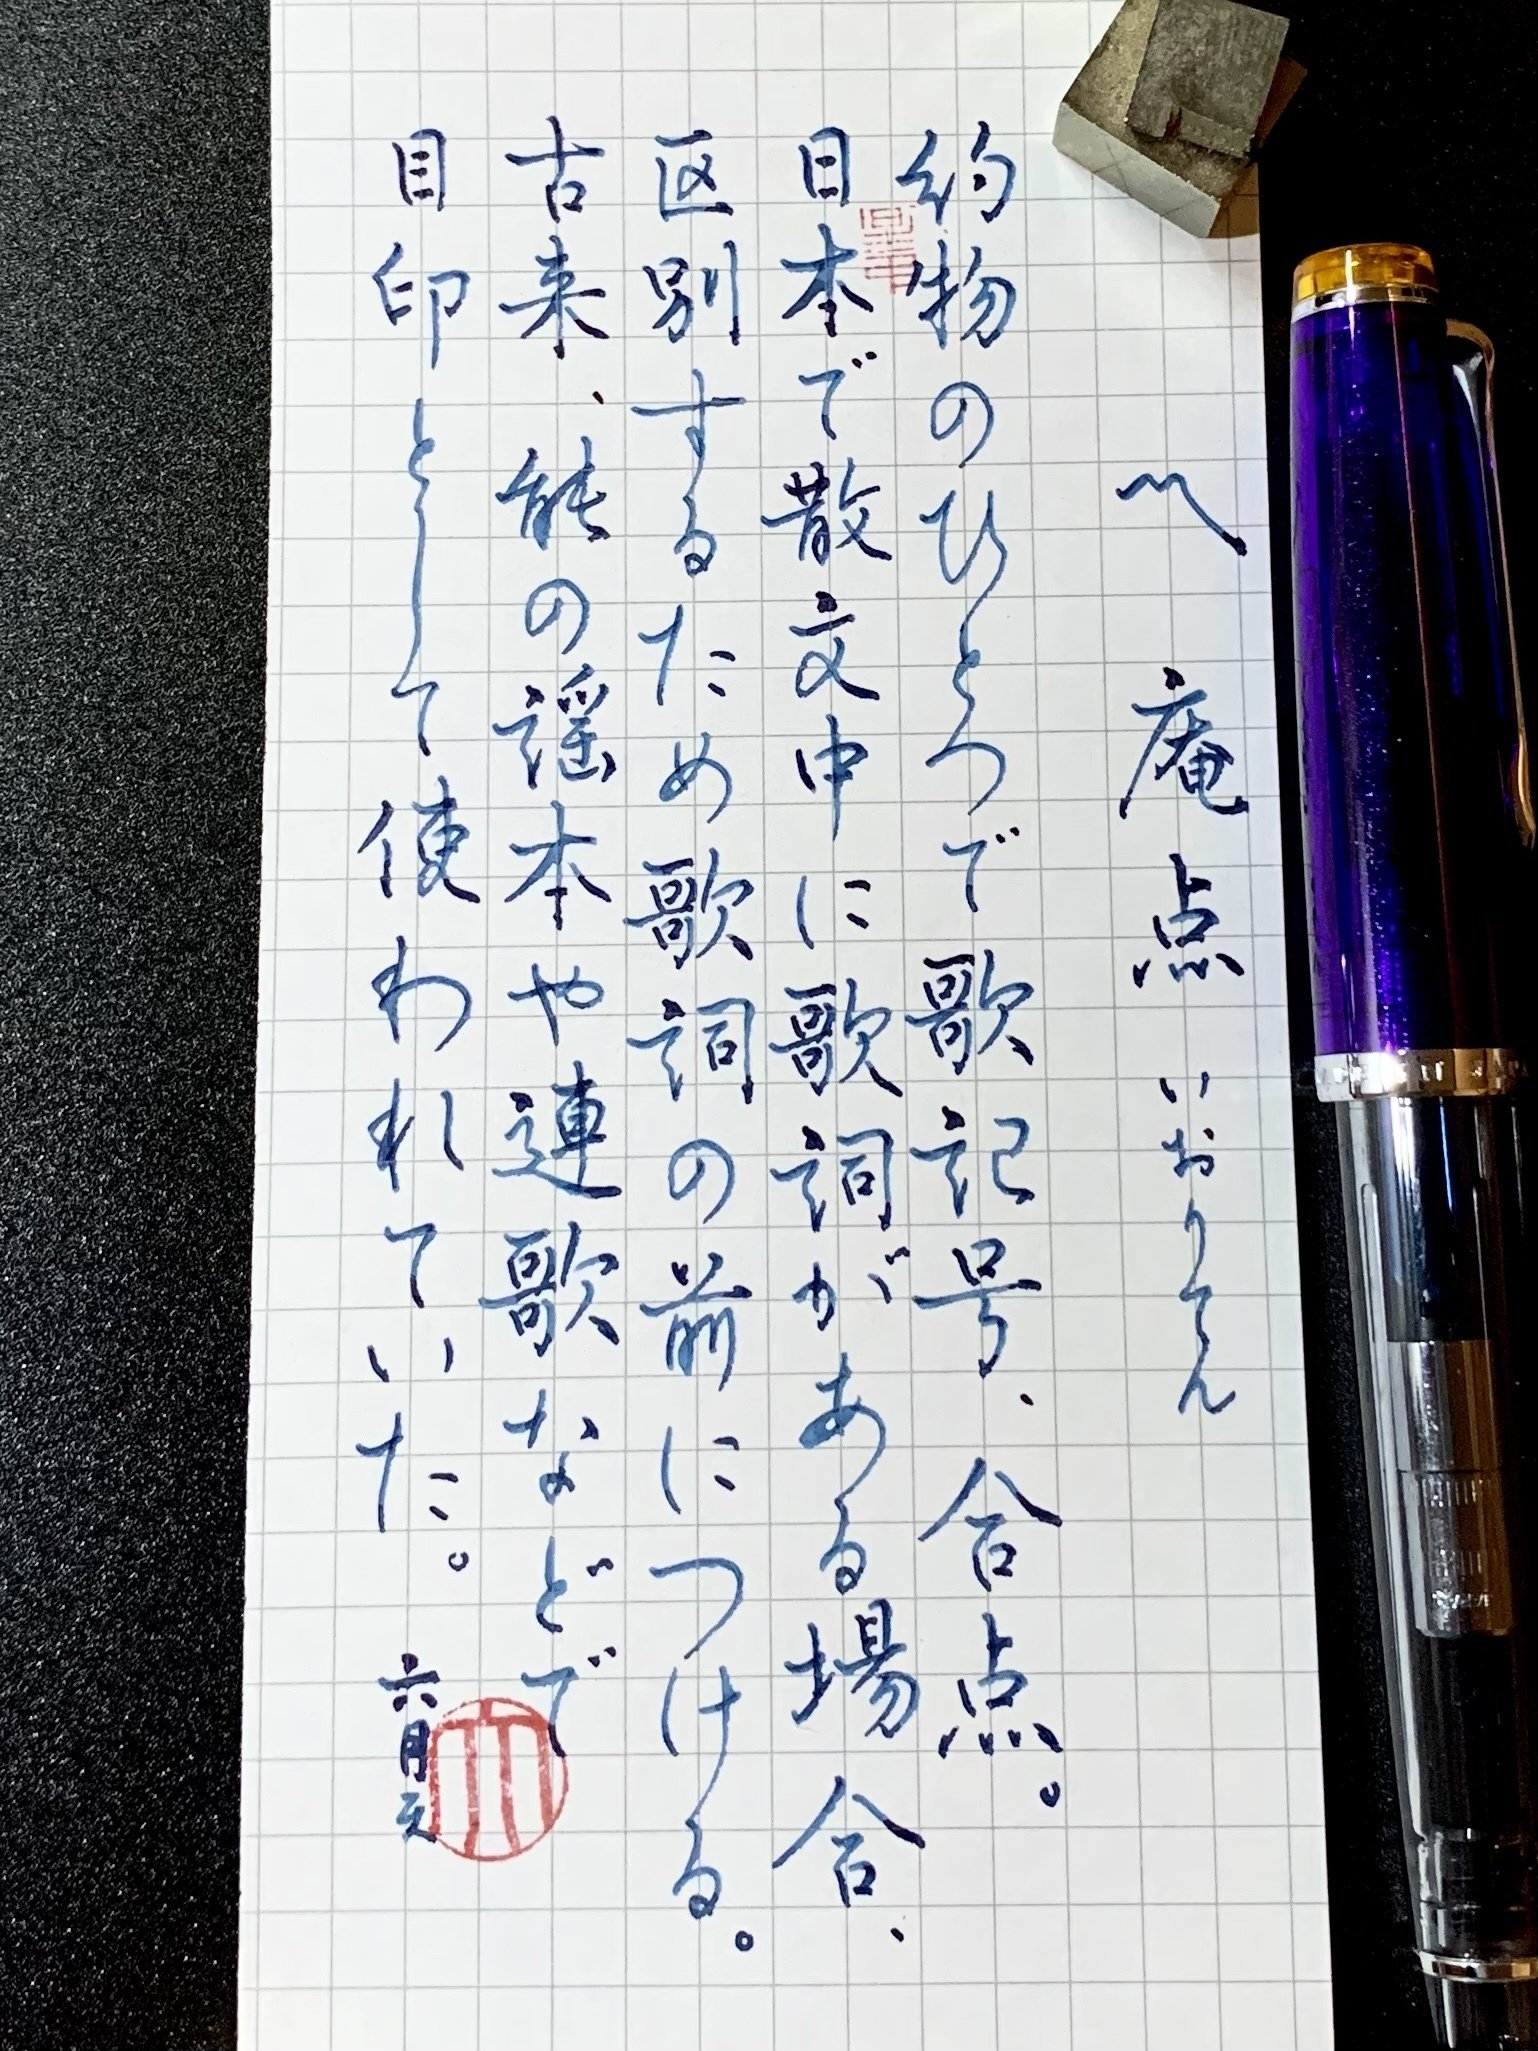 〽 庵点 いおりてん
約物のひとつで歌記号、合点。
日本で散文中に歌詞がある場合、
区別するため歌詞の前につける。
古来、能の謡本や連歌などで
目印として使われていた。